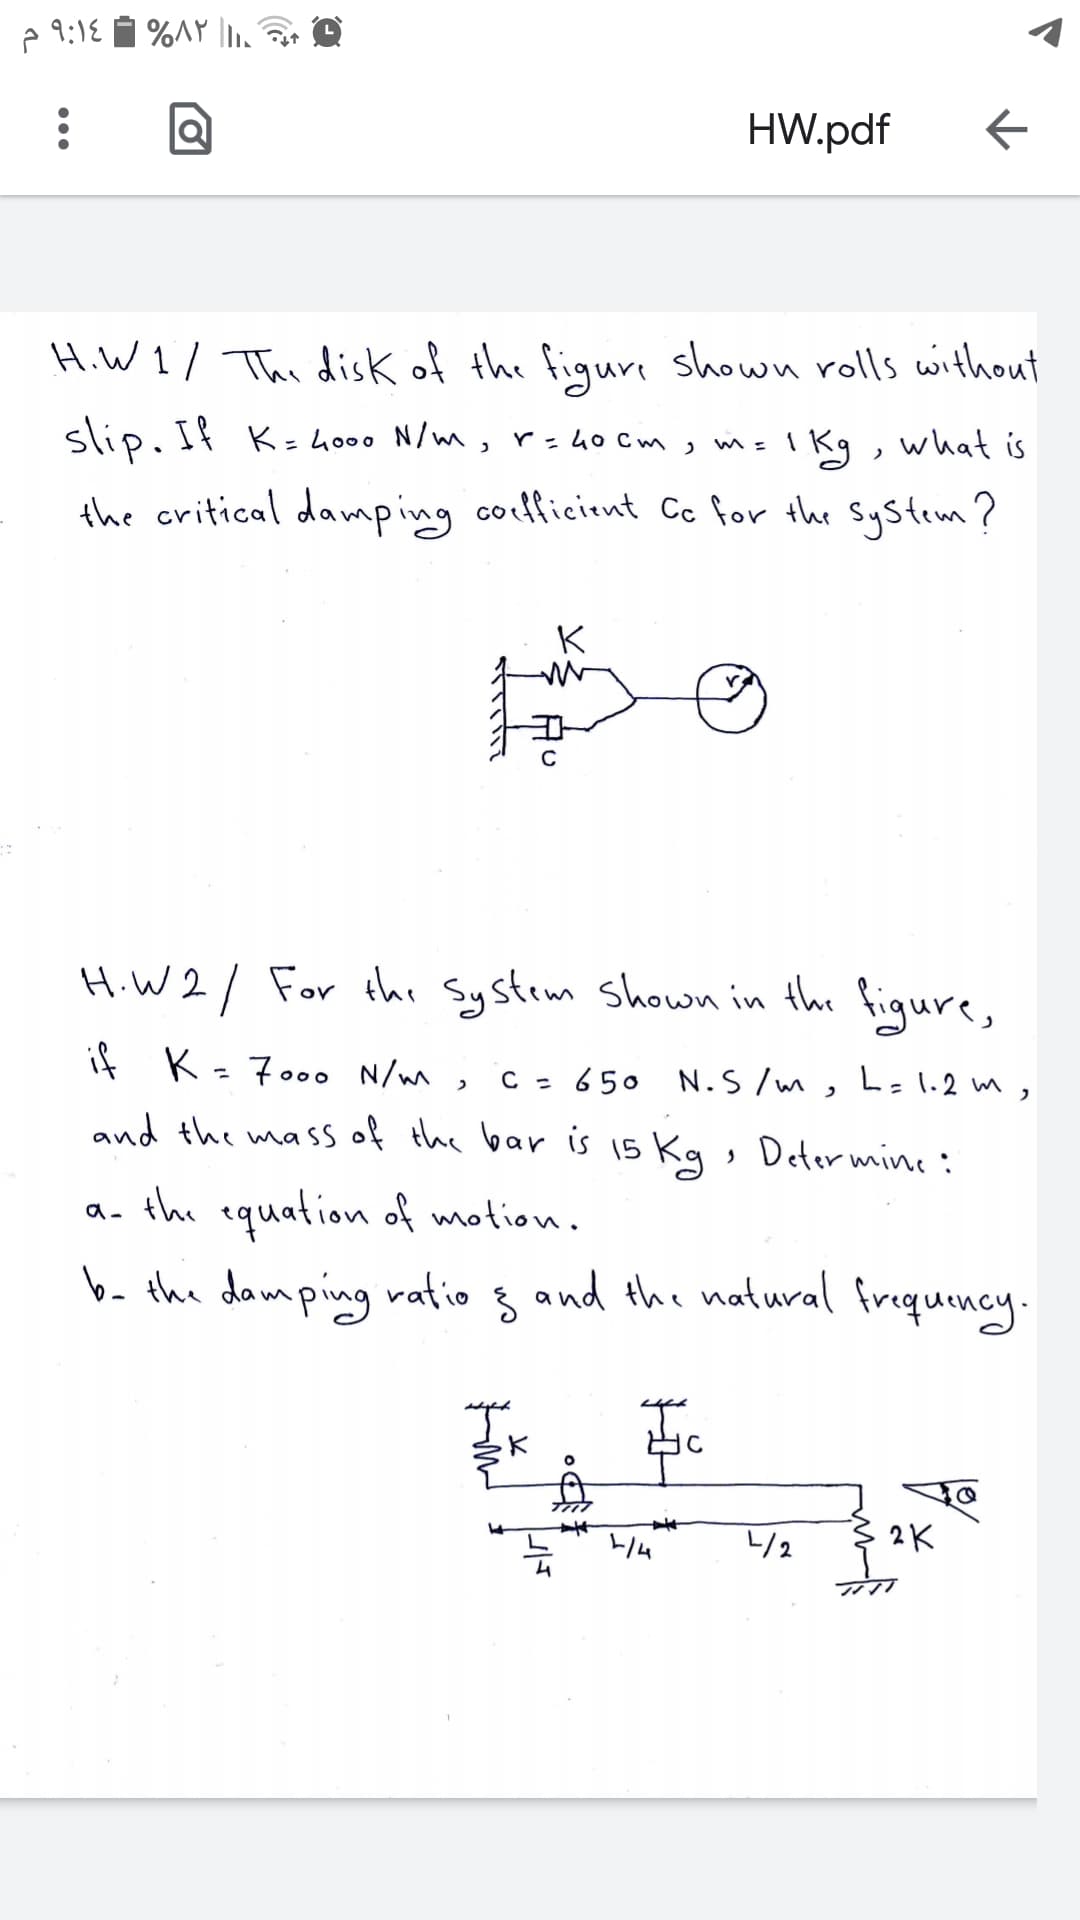 ٩:١٤ م %٨٢
HW.pdf
H.W 1 / The disk of the figure shown rolls without
slip. If K = 4000 N/m , r = 40 cm , m = 1 Kg , what is
the critical damping coefficient Cc for the system ?
K
r
C
H.W 2 / For the system shown in the figure,
if K = 7000 N/m , C = 650 N.S/m , L = 1.2 m ,
and the mass of the bar is 15 Kg , Determine :
a- the equation of motion.
b- the damping ratio ξ and the natural frequency.
K
C
o
θ
2K
L/4
L/4
L/2